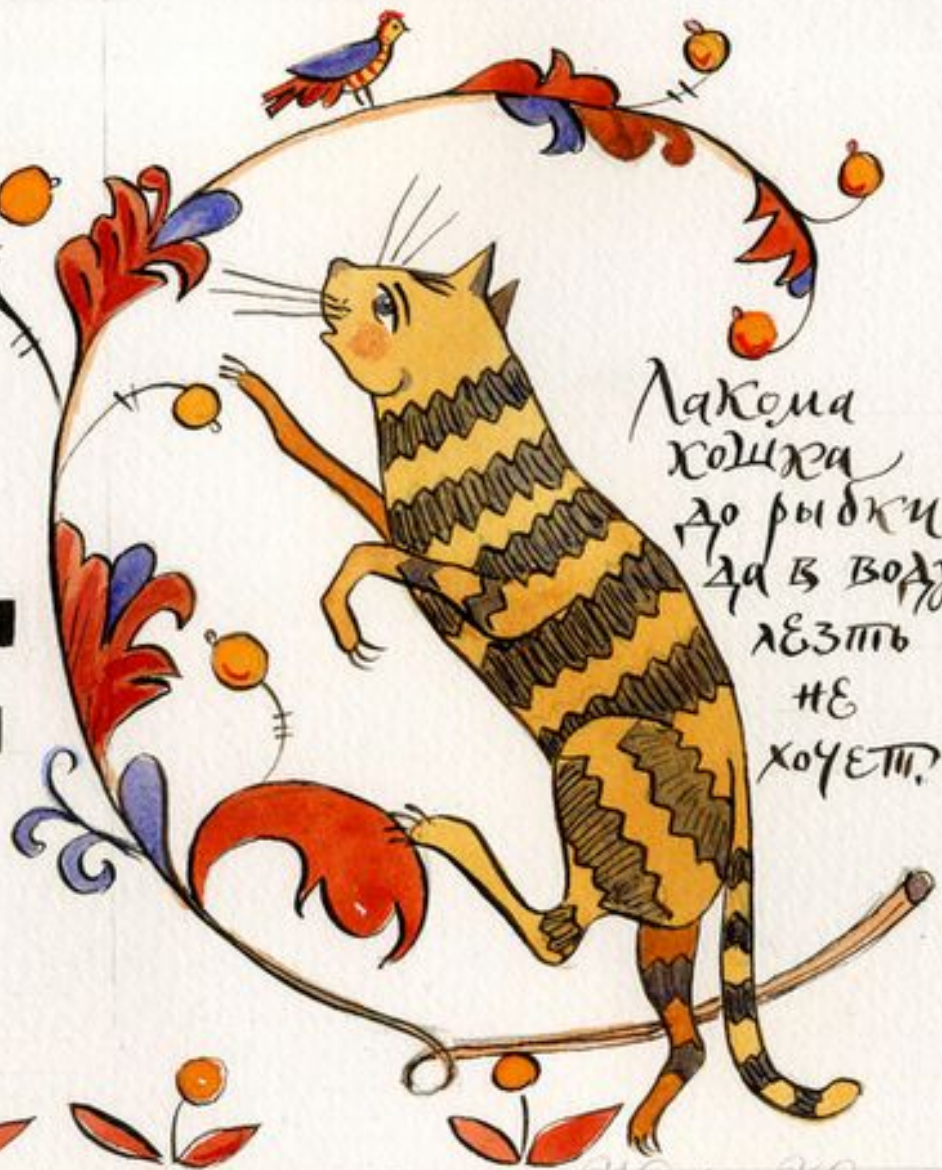 Лакома
кошка
до рыбки
да в воду
лезть
не
хочет.